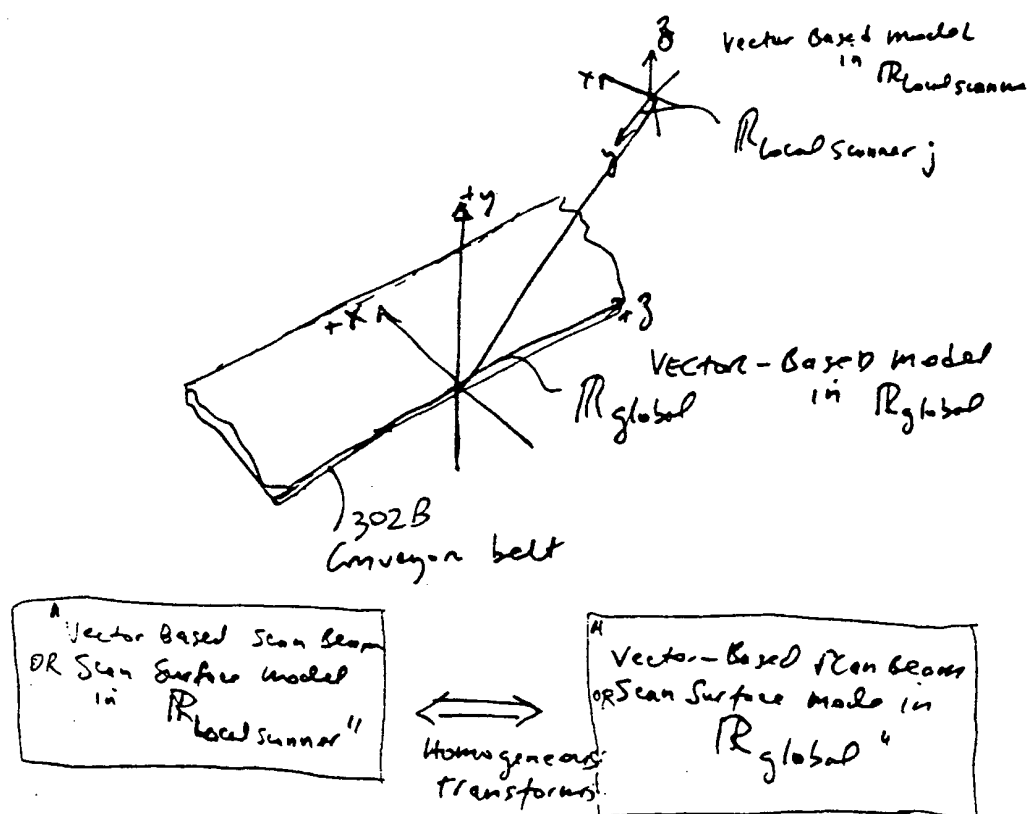 Vector Based model
in
ℝ Local scanner
z
x
y
ℝ Local scanner j
+y
+X
+z
VECTOR-BASED model
in ℝ global
ℝ global
302B
Conveyor belt
"Vector Based Scan Beam
OR Scan Surface model
in
ℝ Local scanner"
Homogeneous
transforms
"Vector-Based Scan Beam
OR Scan Surface mode in
ℝ global"